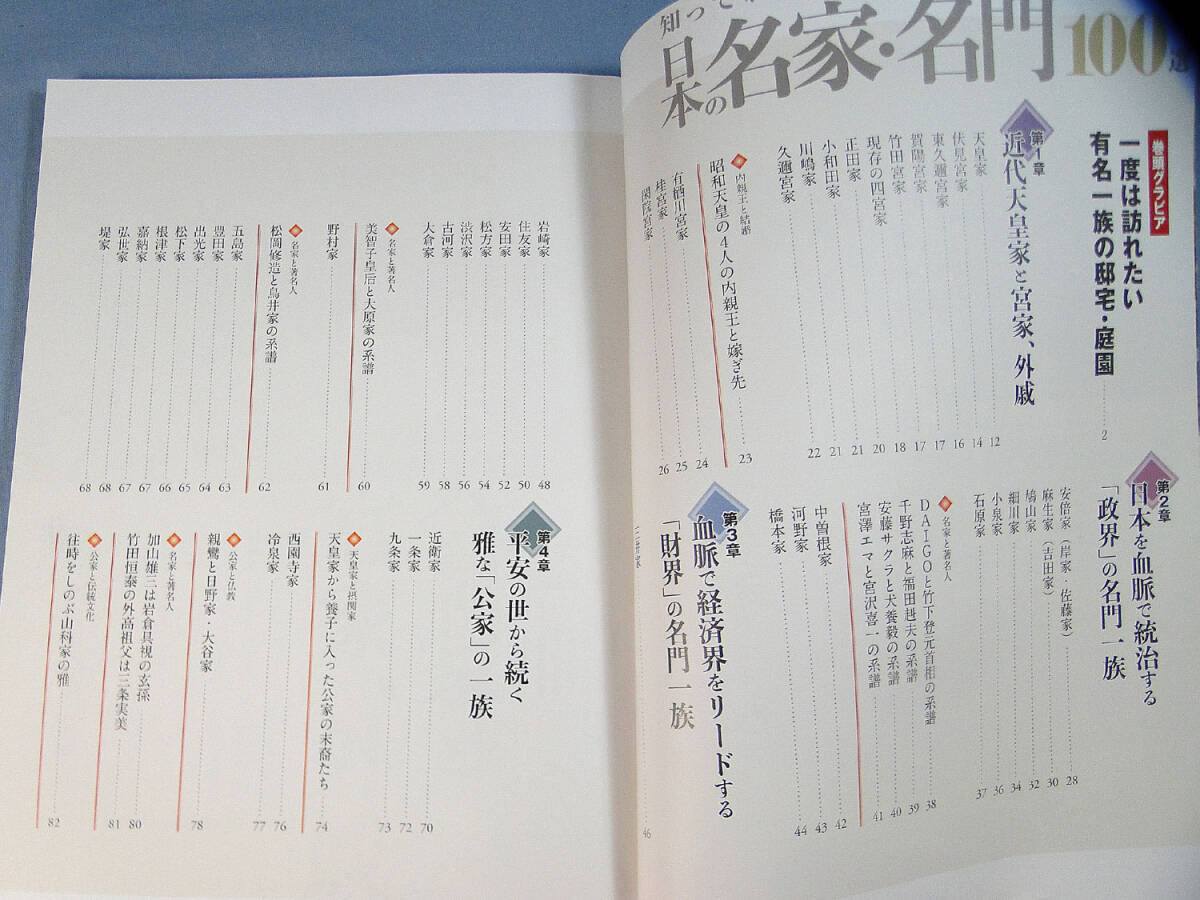 知って
日本の名家・名門100選
巻頭グラビア
一度は訪れたい
有名一族の邸宅・庭園 2
第1章
近代天皇家と宮家、外戚
天皇家 12
伏見宮家 14
東久邇宮家 16
賀陽宮家 17
竹田宮家 17
現存の四宮家 18
正田家 20
小和田家 21
川嶋家 21
久邇宮家 22
内親王と結婚
昭和天皇の4人の内親王と嫁ぎ先 23
有栖川宮家 24
桂宮家 25
閑院宮家 26
第2章
日本を血脈で統治する
「政界」の名門一族
安倍家(岸家・佐藤家) 28
麻生家(吉田家) 30
鳩山家 32
細川家 34
小泉家 36
石原家 37
名家と著名人
DAIGOと竹下登元首相の系譜 38
千野志麻と福田赳夫の系譜 39
安藤サクラと犬養毅の系譜 40
宮澤エマと宮沢喜一の系譜 41
中曽根家 42
河野家 43
橋本家 44
第3章
血脈で経済界をリードする
「財界」の名門一族
三井家 46
岩崎家 48
住友家 50
安田家 52
松方家 54
渋沢家 56
古河家 58
大倉家 59
名家と著名人
美智子皇后と大原家の系譜 60
野村家 61
名家と著名人
松岡修造と鳥井家の系譜 62
五島家 63
豊田家 64
出光家 65
松下家 66
根津家 67
嘉納家 67
弘世家 68
堤家 68
第4章
平安の世から続く
雅な「公家」の一族
近衛家 70
一条家 72
九条家 73
天皇家と摂関家
天皇家から養子に入った公家の末裔たち 74
西園寺家 76
冷泉家 77
公家と仏教
親鸞と日野家・大谷家 78
名家と著名人
加山雄三は岩倉具視の玄孫 80
竹田恒泰の外高祖父は三条実美 81
公家と伝統文化
往時をしのぶ山科家の雅 82